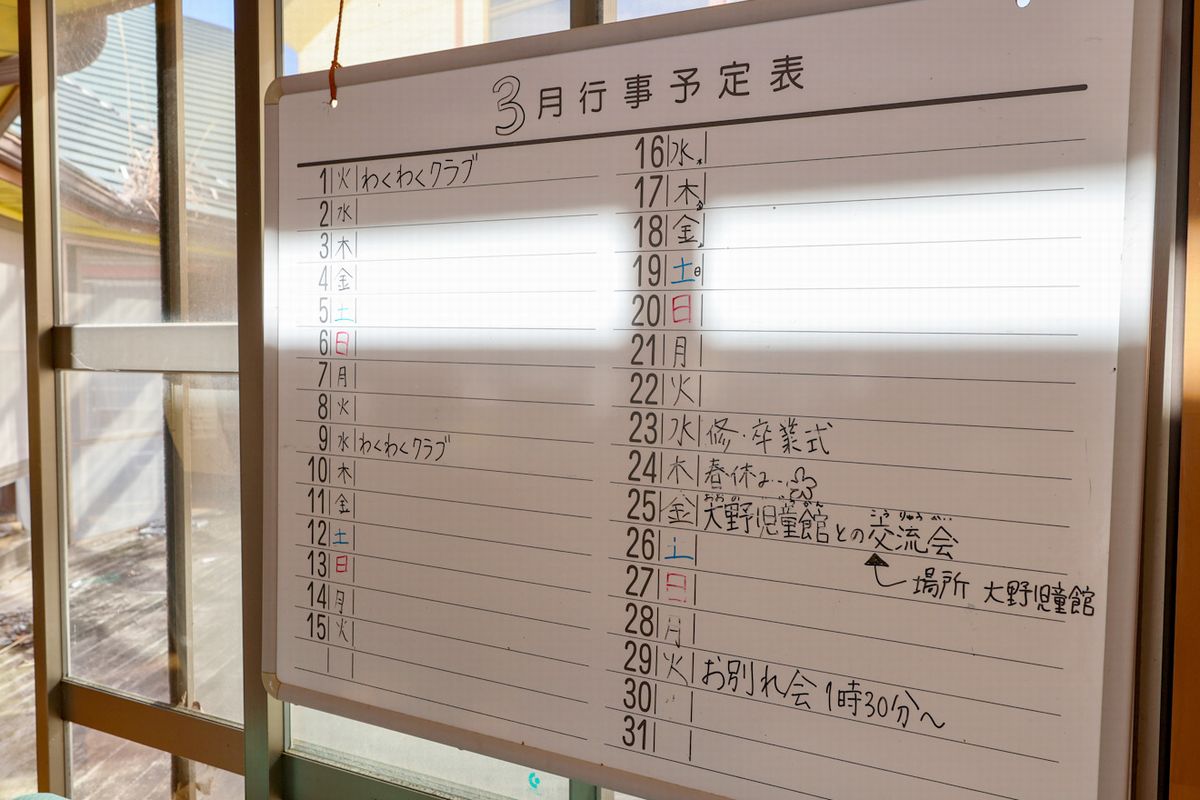 3月行事予定表
1 火 わくわくクラブ
2 水
3 木
4 金
5 土
6 日
7 月
8 火
9 水 わくわくクラブ
10 木
11 金
12 土
13 日
14 月
15 火
16 水
17 木
18 金
19 土
20 日
21 月
22 火
23 水 修・卒業式
24 木 春休み…
25 金 大野児童館との交流会
場所 大野児童館
26 土
27 日
28 月
29 火 お別れ会 1時30分～
30
31